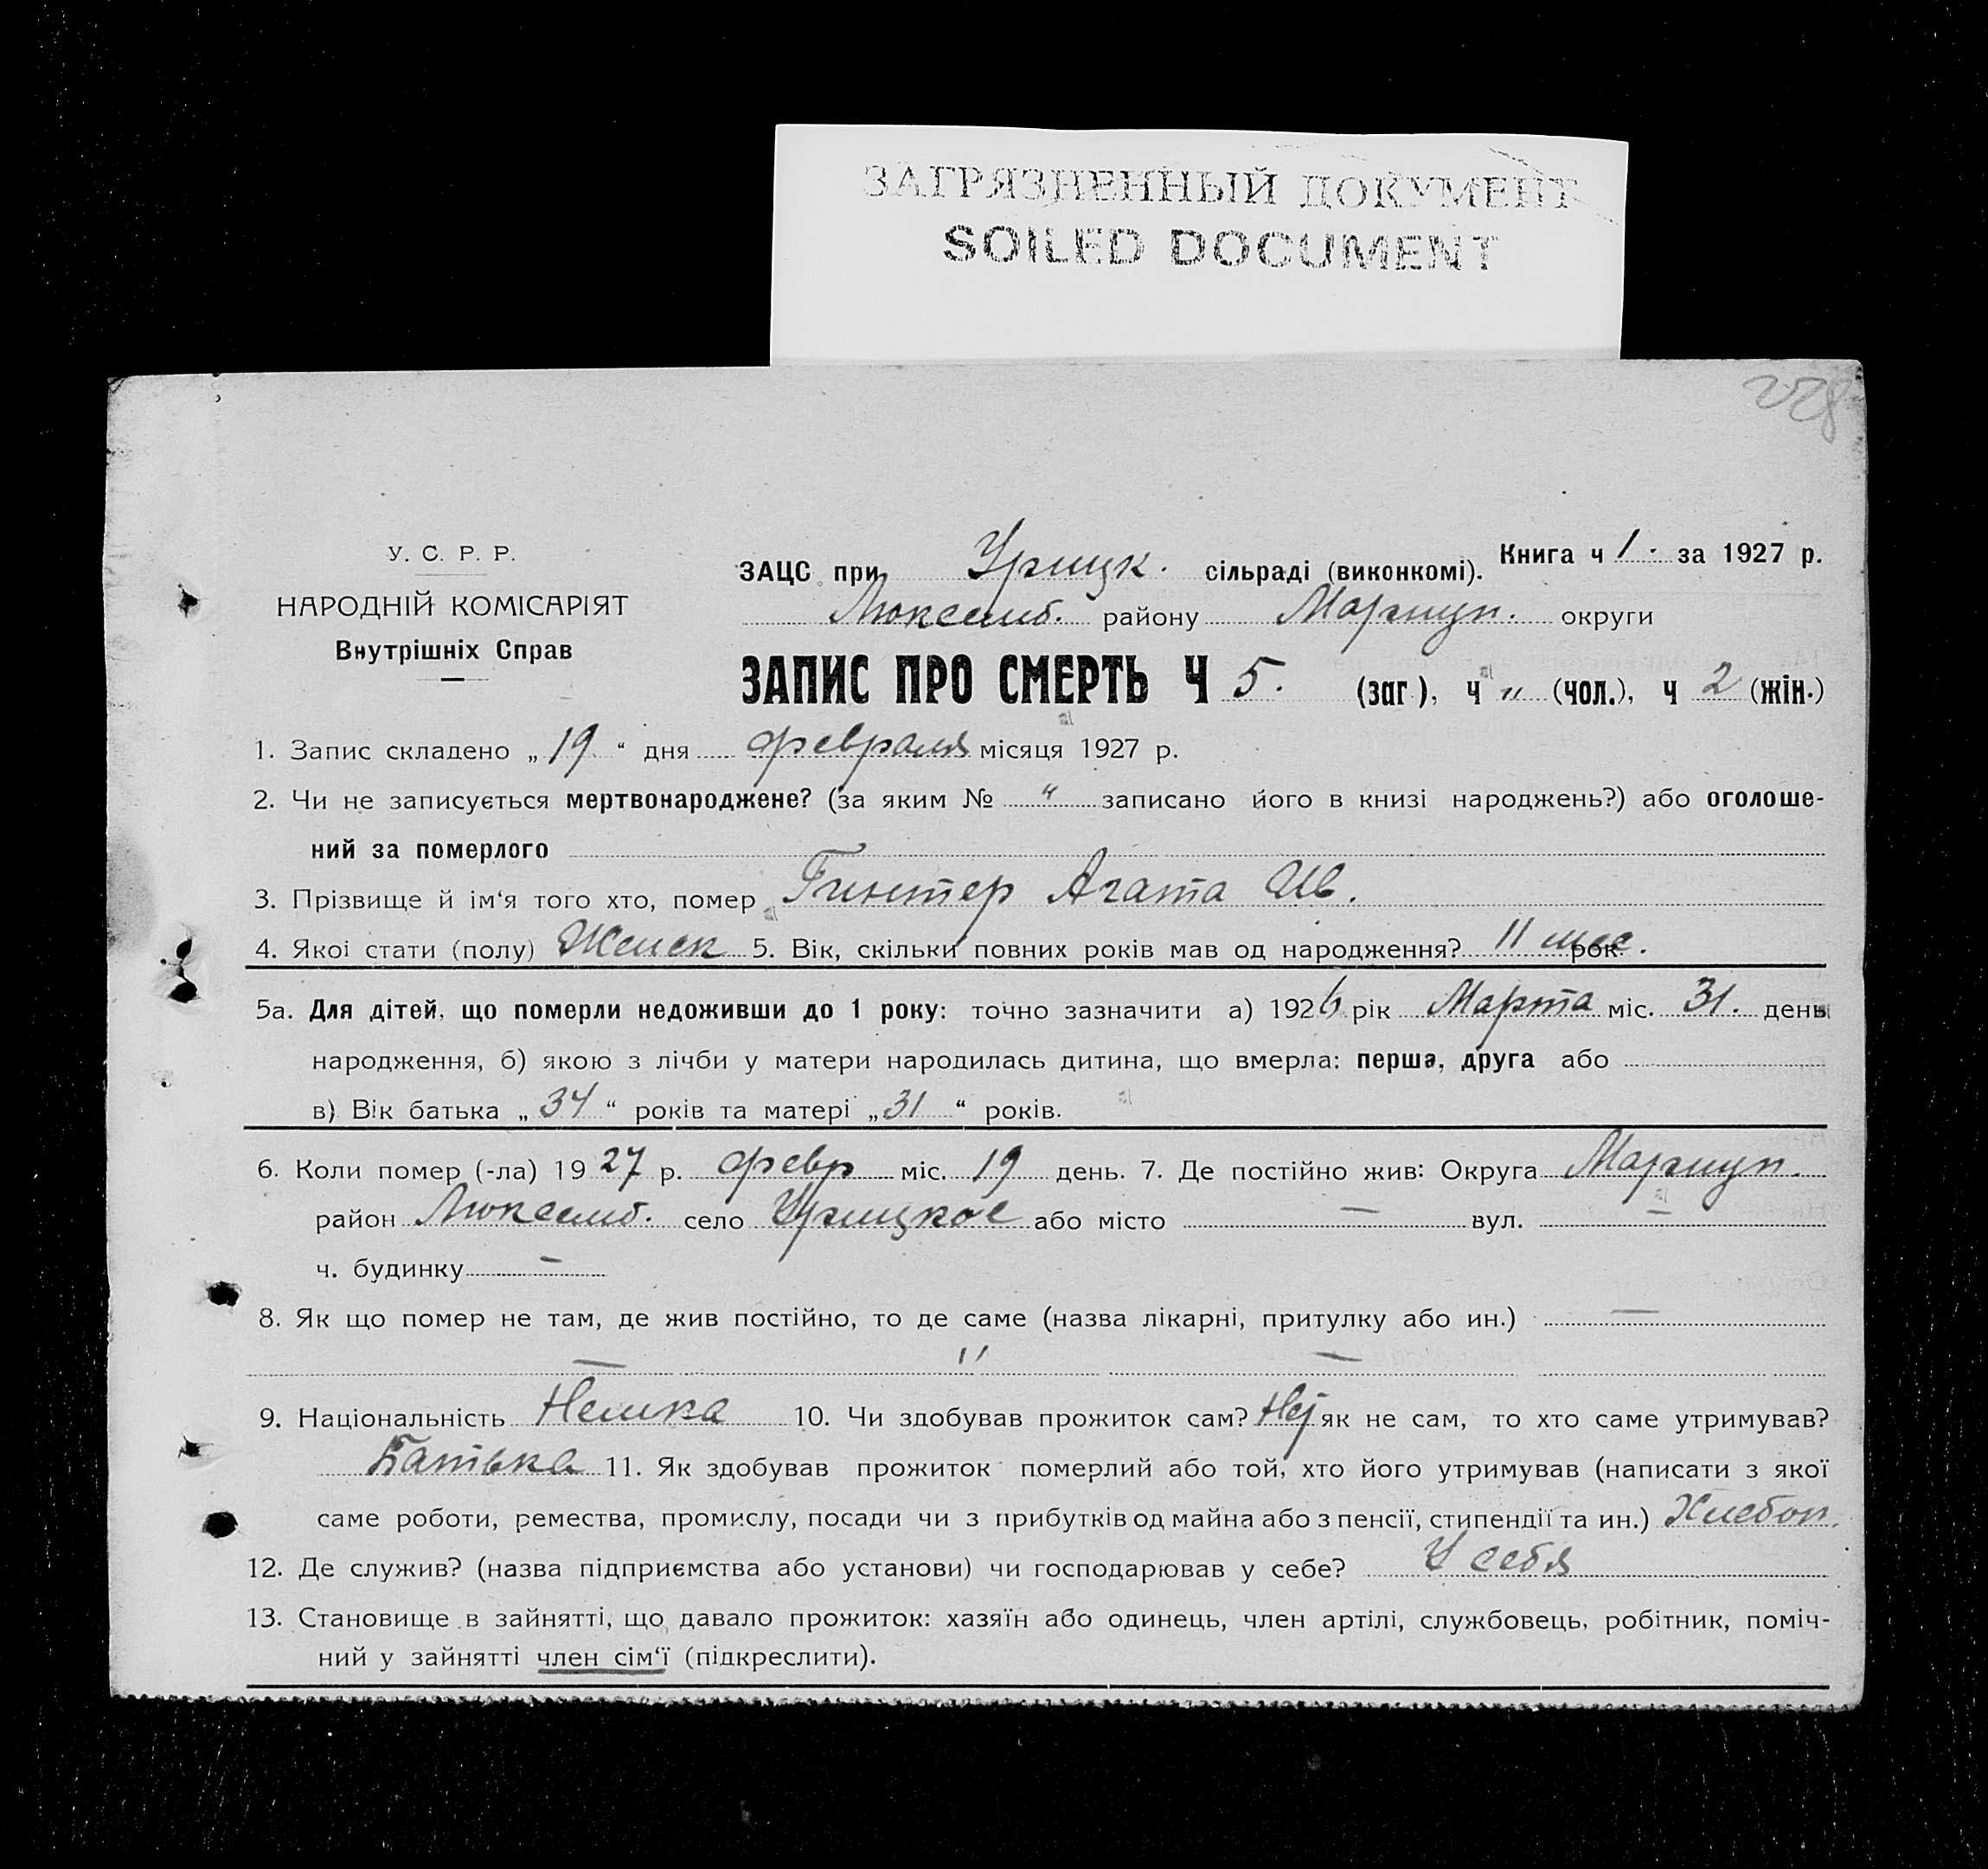 ЗАГРЯЗНЕННЫЙ ДОКУМЕНТ
SOILED DOCUMENT
228
У. С. Р. Р.
НАРОДНІЙ КОМІСАРІЯТ
Внутрішніх Справ
ЗАЦС при Урицк. сільраді (виконкомі). Книга ч 1. за 1927 р.
Люксемб. району Мариуп. округи
ЗАПИС ПРО СМЕРТЬ Ч 5. (заг.), ч " (чол.), ч 2 (жін.)
1. Запис складено „19“ дня февраля місяця 1927 р.
2. Чи не записується мертвонароджене? (за яким № " записано його в книзі народжень?) або оголоше-
ний за померлого
3. Прізвище й ім‘я того хто, помер Гинтер Агата Ив.
4. Якої стати (полу) Женск 5. Вік, скільки повних років мав од народження? 11 мес. рок.
5а. Для дітей, що померли недоживши до 1 року: точно зазначити а) 1926 рік Марта міс. 31. день
народження, б) якою з лічби у матери народилась дитина, що вмерла: перша, друга або
в) Вік батька „34“ років та матері „31“ років.
6. Коли помер (-ла) 1927 р. февр міс. 19 день. 7. Де постійно жив: Округа Мариуп.
район Люксемб. село Урицкое або місто — вул. —
ч. будинку —
8. Як що помер не там, де жив постійно, то де саме (назва лікарні, притулку або ин.) —
— " —
9. Національність Немка 10. Чи здобував прожиток сам? Ні як не сам, то хто саме утримував?
Батька 11. Як здобував прожиток померлий або той, хто його утримував (написати з якої
саме роботи, ремества, промислу, посади чи з прибутків од майна або з пенсії, стипендії та ин.) Хлебоп.
12. Де служив? (назва підприємства або установи) чи господарював у себе? У себя
13. Становище в зайнятті, що давало прожиток: хазяїн або одинець, член артілі, службовець, робітник, поміч-
ний у зайнятті член сім‘ї (підкреслити).